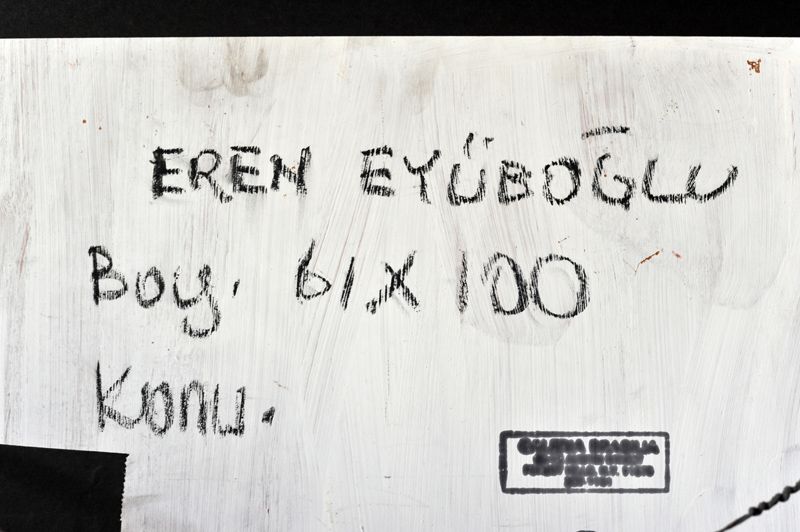 EREN EYÜBOĞLU
Boy. 61 X 100
Konu.